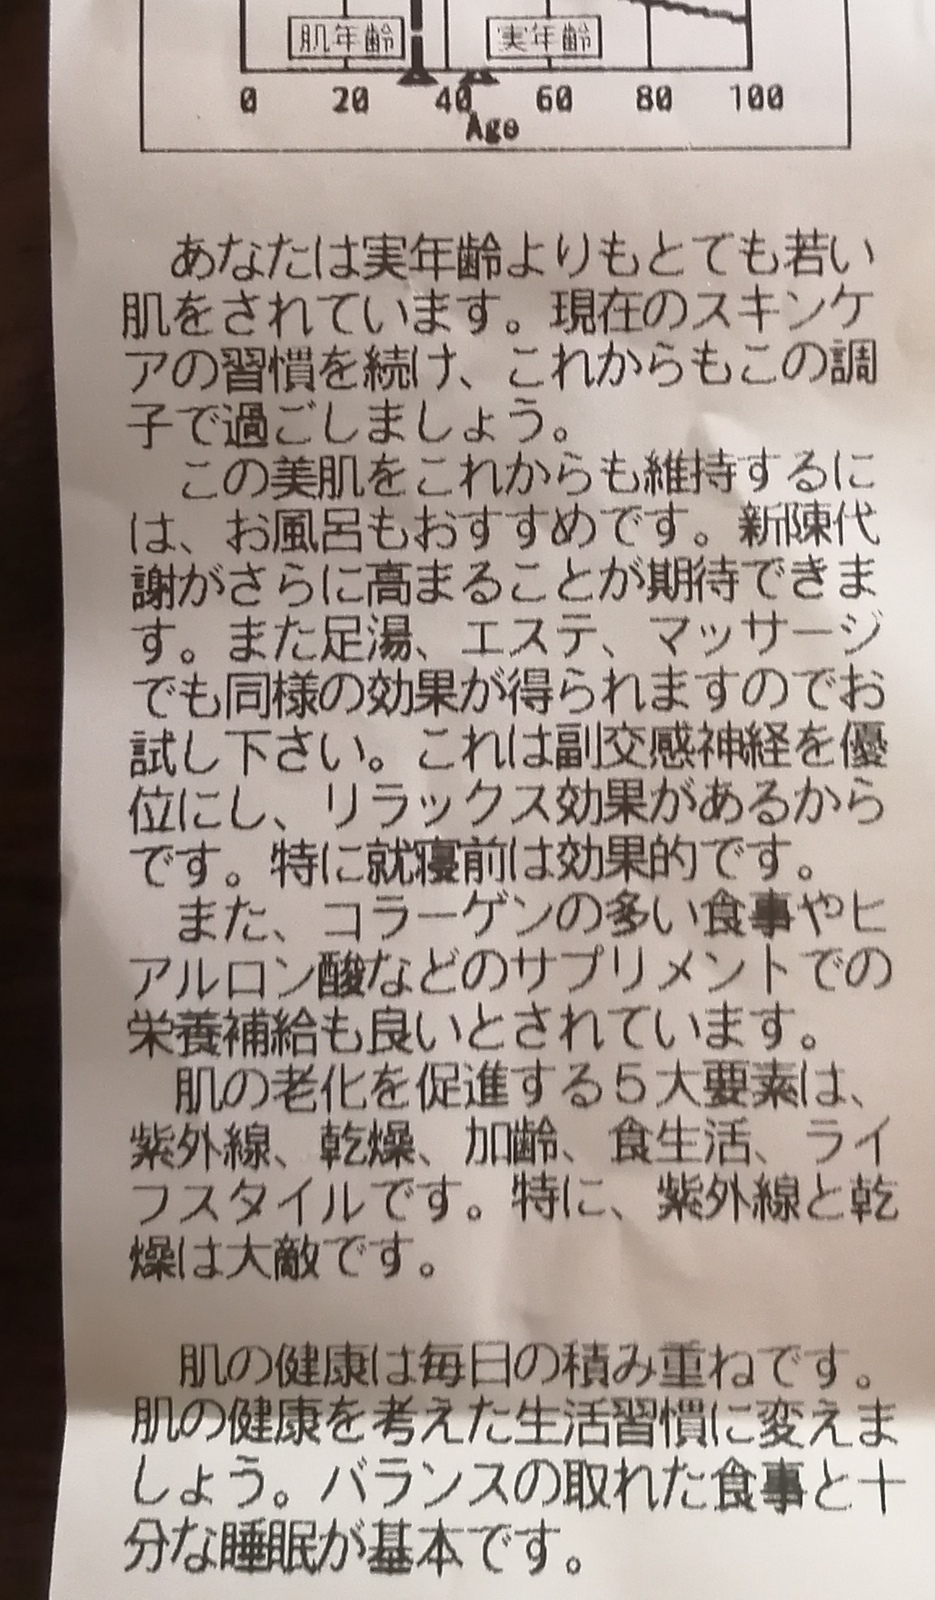 肌年齢 実年齢
0 20 40 60 80 100
Age
あなたは実年齢よりもとても若い
肌をされています。現在のスキンケ
アの習慣を続け、これからもこの調
子で過ごしましょう。
この美肌をこれからも維持するに
は、お風呂もおすすめです。新陳代
謝がさらに高まることが期待できま
す。また足湯、エステ、マッサージ
でも同様の効果が得られますのでお
試し下さい。これは副交感神経を優
位にし、リラックス効果があるから
です。特に就寝前は効果的です。
また、コラーゲンの多い食事やヒ
アルロン酸などのサプリメントでの
栄養補給も良いとされています。
肌の老化を促進する５大要素は、
紫外線、乾燥、加齢、食生活、ライ
フスタイルです。特に、紫外線と乾
燥は大敵です。
肌の健康は毎日の積み重ねです。
肌の健康を考えた生活習慣に変えま
しょう。バランスの取れた食事と十
分な睡眠が基本です。